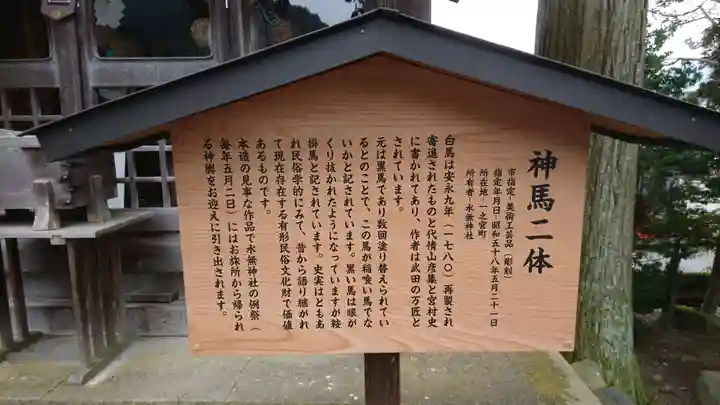 神馬二体
市指定・美術工芸品（彫刻）
指定年月日・昭和五十八年五月二十一日
所在地・一之宮町
所有者・水無神社
白馬は安永九年（一七八〇）再製され
寄進されたものと代情山彦集と宮村史
に書かれてあり、作者は武田の万匠と
されています。
元は黒馬であり数回塗り替えられてい
るとのことで、この馬が稲喰い馬でな
いかと記されています。黒い馬は眼が
くり抜かれたようになっていますが絵
掛馬と記されています。史実はともあ
れ民俗学的にみて、昔から語り継がれ
て現在存在する有形民俗文化財で価値
あるものです。
本造の見事な作品で水無神社の例祭（
毎年五月二日）にはお旅所から帰られ
る神輿をお迎えに引き出されます。